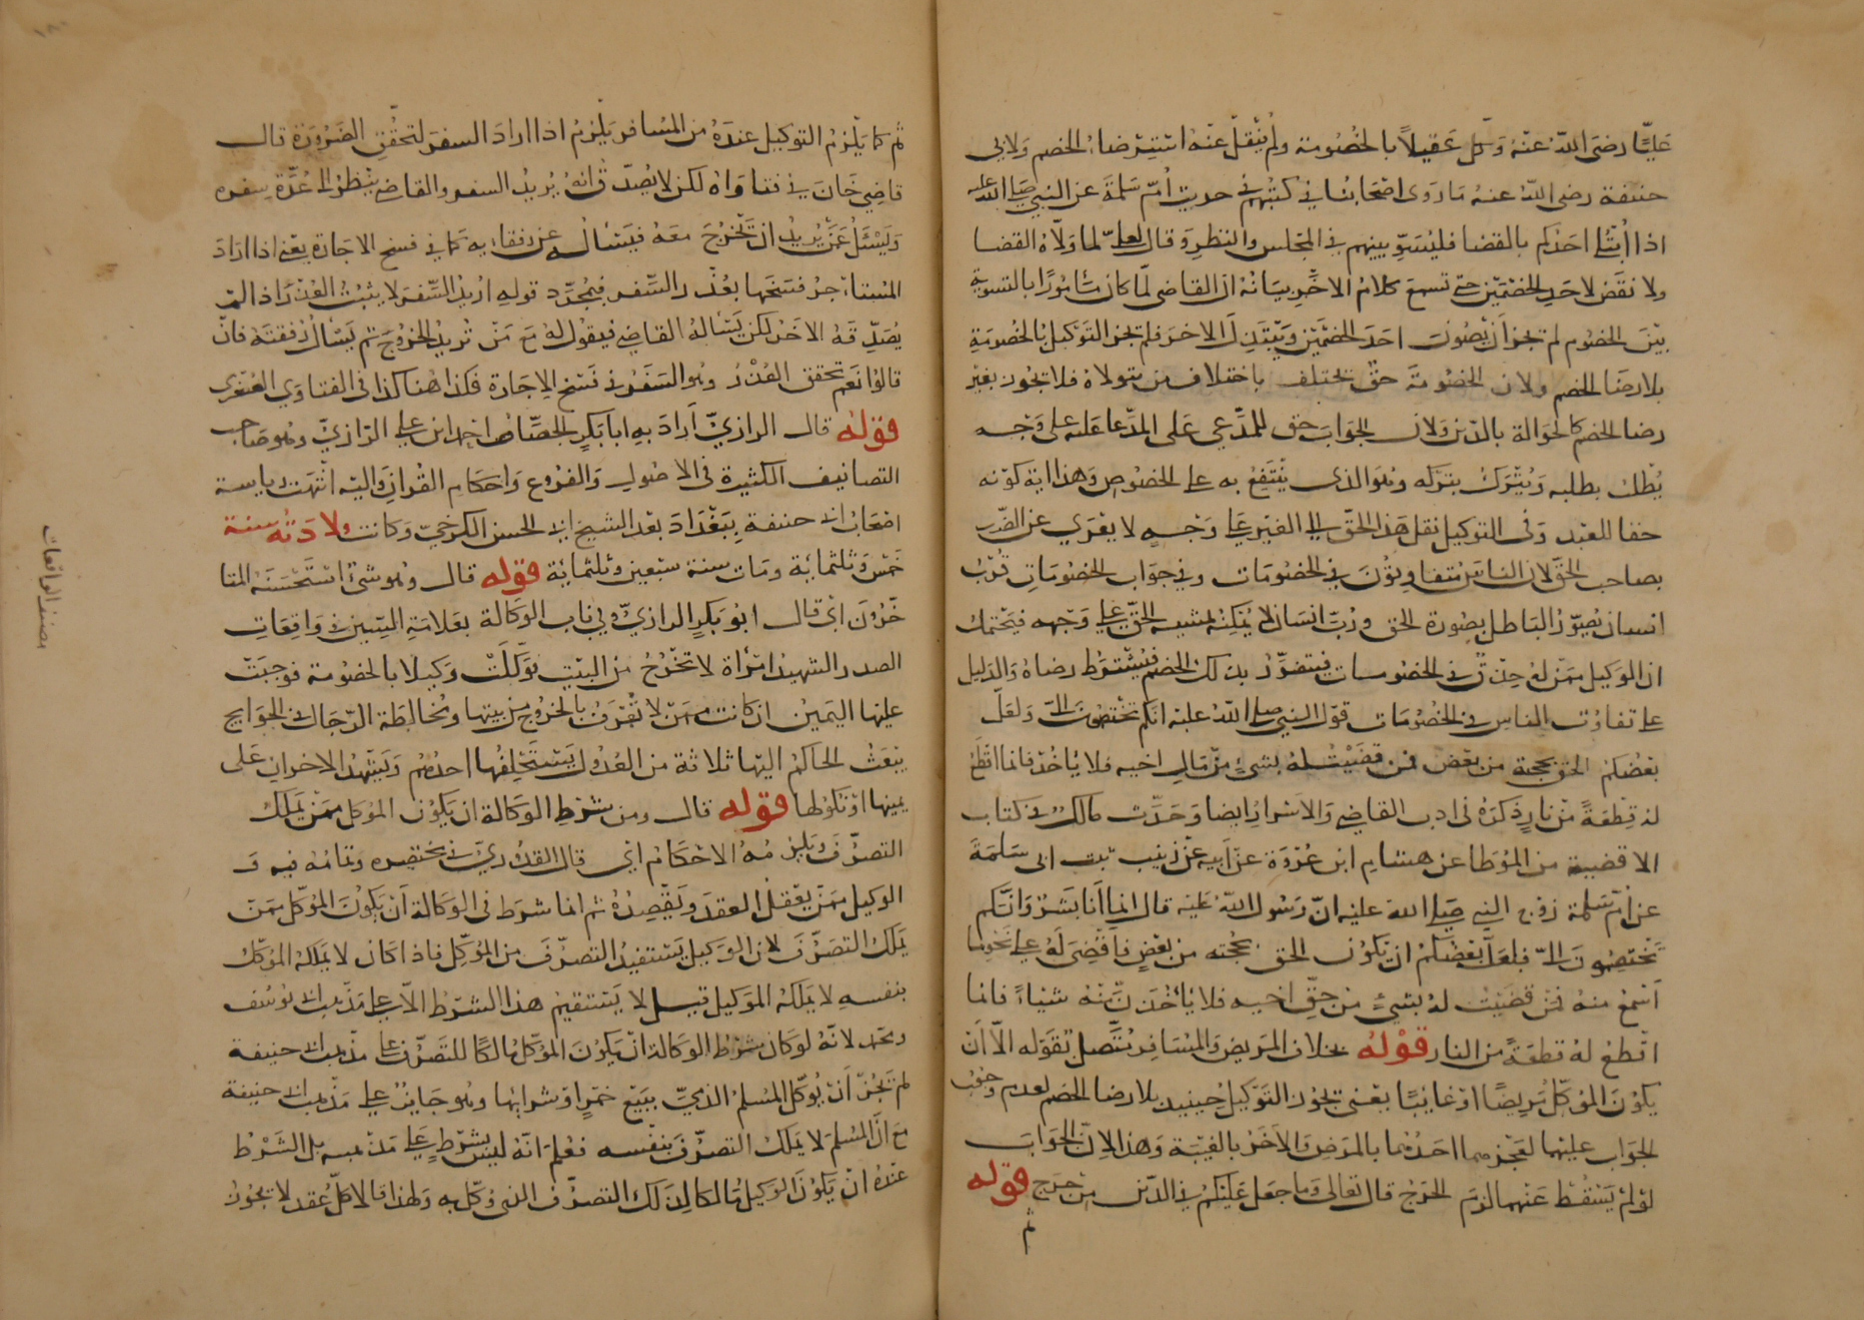 عليًّا رضى الله عنه وكل عقيلاً بالخصومة ولم ينقل عنه استرضاء الخصم ولابى
حنيفة رضى الله عنه ما روى اصحابنا فى كتبهم فى حديث ام سلمة عن النبى صلى الله عليه
اذا ابتلى احدكم بالقضا فليسوِّ بينهم فى المجلس والنظر وقال لعلىّ لما ولاه القضا
ولا تقض لاحد الخصمين حتى تسمع كلام الاخر بيانه ان القاضى لمّا كان مأمورًا بالتسوية
بين الخصوم لم تجز ان يصون احد الخصمين ويبتذل الاخر فلم تجز التوكيل بالخصومة
بلا رضا الخصم ولان الخصومة حق يختلف باختلاف من يتولاه فلا تجوز بغير
رضا الخصم كالحوالة بالدين ولان الجواب حق للمدعى على المدعا عليه على وجه
يطلب بطلبه ويترك بتركه وهو الذى ينتفع به على الخصوص وهذا اية كونه
حقا للعبد وفى التوكيل نقل هذا الحق الى الغير على وجه لا يعرى عن الضرر
بصاحب الحق لان الناس متفاوتون فى الخصومات وفى جواب الخصومات فرب
انسان يصوّر الباطل بصورة الحق ورب انسان لا يمكنه تمشية الحق على وجهه فيحتمل
ان الوكيل ممن له حذق فى الخصومات فيتضرر بذلك الخصم فيشترط رضاه والدليل
على تفاوت الناس فى الخصومات قول النبى صلى الله عليه انكم تختصمون الىّ ولعلّ
بعضكم الحن بحجته من بعض فمن قضيت له بشىء من مال اخيه فلا ياخذ فانما اقطع
له قطعةً من نار ذكره فى ادب القاضى والاسرار ايضا وحدّث مالك فى كتاب
الاقضية من الموطأ عن هشام ابن عروة عن ابيه عن زينب بنت ابى سلمة
عن ام سلمة زوج النبى صلى الله عليه انّ رسول الله عليه قال انما انا بشر وانكم
تختصمون الىّ فلعلّ بعضكم ان تكون الحن بحجته من بعض فاقضى له على نحو ما
اسمع منه فمن قضيت له بشىء من حق اخيه فلا ياخذن منه شيئاً فانما
اقطع له قطعةً من النار قوله بخلاف المريض والمسافر متّصل بقوله الا ان
يكون الموكل مريضًا او غائبًا يعنى تجوز التوكيل حينيذ بلا رضا الخصم لعدم وجوب
الجواب عليهما لعجزهما احدهما بالمرض والآخر بالغيبة وهذا لان الجواب
لو لم يسقط عنهما لزم الحرج قال تعالى وما جعل عليكم فى الدين من حرج قوله
ثم
ثم كما يلزم التوكيل عنده من المسافر يلزم اذا اراد السفر لتحقق الضرورة قال
قاضى خان فى فتاواه لكن لا يصدّق انه يريد السفر والقاضى ينظر الى عُدّة سفره
ويسئل عمّن يريد ان تخرج معه فيسأل عن رفقايه كما فى فسخ الاجارة يعنى اذا اراد
المستاجر فسخها بعذر السفر فبمجرد قوله اريد السفر لا يثبت العذر اذا لم
يصدّقه الاخر لكن يسأله القاضى فيقول له مع من تريد الخروج ثم يسأل رفقته فان
قالوا نعم تحقق العذر وهو السفر فى فسخ الاجارة فكذا هنا كذا فى الفتاوى الصغرى
قوله قال الرازىّ اراد به ابا بكر الجصّاص احمد ابن على الرازىّ وهو صاحب
التصانيف الكثيرة فى الاصول والفروع واحكام القران واليه انتهت رياسة
اصحاب ابى حنيفة ببغداد بعد الشيخ ابى الحسن الكرخىّ وكانت ولادته سنة
خمس وثلثماية ومات سنة سبعين وثلثماية قوله قال وهو شىء استحسنه المتا
خرون اى قال ابو بكر الرازىّ وفى باب الوكالة بعلامة السين فى واقعات
الصدر الشهيد امرأة لا تخرج من البيت توكلت وكيلا بالخصومة فوجبت
عليها اليمين ان كانت ممن لا تعرف بالخروج من بيتها ومخالطة الرجال فى الحوايج
يبعث الحاكم اليها ثلاثة من العدول يستحلفها احدهم ويشهد الاخران على
يمينها او نكولها قوله قال ومن شرط الوكالة ان يكون الموكل ممن يملك
التصرّف ويلزمه الاحكام اى قال القدورىّ فى مختصره وتمامه فيه و
الوكيل ممن يعقل العقد ويقصده ثم انما شرط فى الوكالة ان يكون الموكّل ممن
يملك التصرّف لان الوكيل يستفيد التصرّف من الموكّل فاذا كان لا يملكه الموكّل
بنفسه لا يملكه الوكيل قيل لا يستقيم هذا الشرط الا على مذهب ابى يوسف
ومحمد لانه لو كان شرط الوكالة ان يكون الموكل مالكًا للتصرّف على مذهب ابى حنيفة
لم تجز ان يوكل المسلم الذمىّ ببيع خمر او شرائها وهو جايز على مذهب ابى حنيفة
مع ان المسلم لا يملك التصرّف بنفسه فعلم انه ليس بشرط على مذهبه بل الشرط
عنده ان يكون الوكيل مالكا لذلك التصرّف الذى وكّل به ولهذا قالا كلّ عقد لا يجوز
بصنف الواقعات